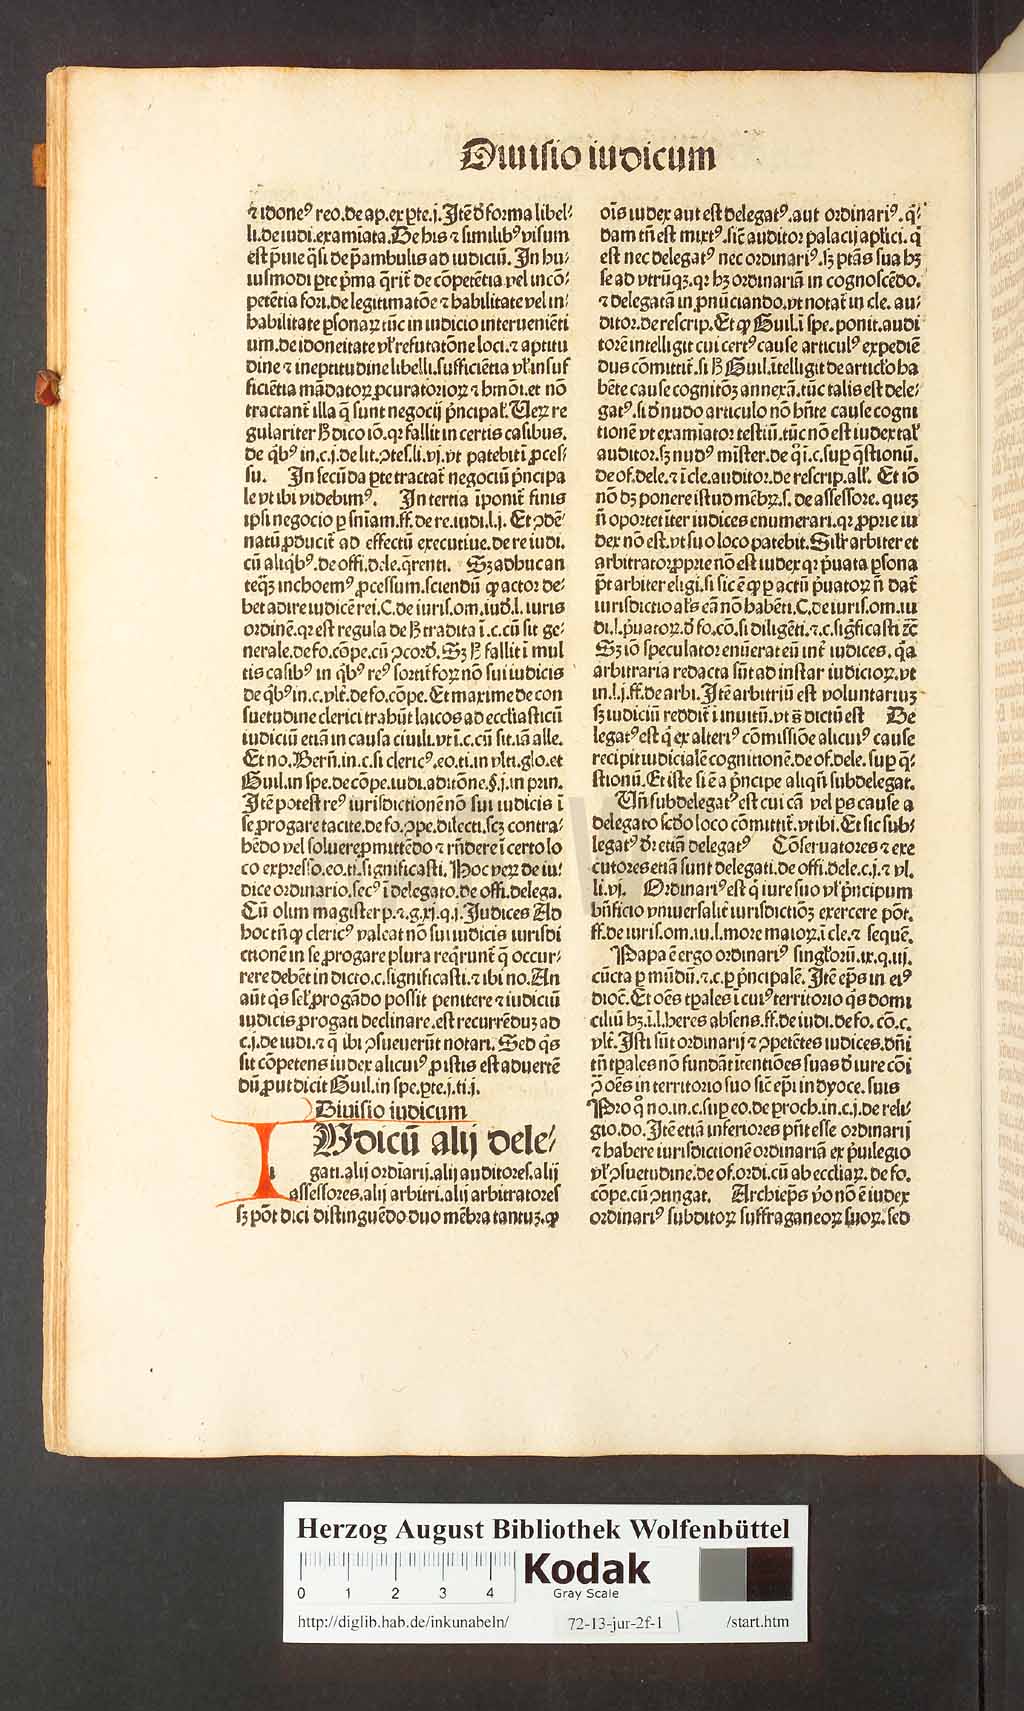 Diuisio iudicum
⁊ idoneꝰ reo.de ap.ex ꝑte.j.Itē đ forma libel⸗
li.de iudi.examīata.De his ⁊ similibꝰ visum
est p̄uie q̄si de p̄ambulis ad iudiciū. In hu⸗
iusmodi ꝑte p̄ma q̄rit̄ de cōpetētia vel incō⸗
petētia fori.de legitimatōe ⁊ habilitate vel in⸗
habilitate ꝑsonaꝝ tūc in iudicio interueniēti
um.de idoneitate vł refutatōne loci.⁊ aptitu
dine ⁊ ineptitudine libelli.sufficiētia vł insuf
ficiētia mādatoꝝ ꝓcuratorioꝝ ⁊ hmōi.et nō
tractant̄ illa q̄ sunt negocij p̄ncipał. Veꝝ re
gulariter ħ dico iō.qꝛ fallit in certis casibus.
de q̄bꝰ in.c.j.de lit.ꝯtes.li.vj.vt patebit ī ꝓces⸗
su. In secūda ꝑte tractat̄ negociū p̄ncipa
le vt ibi videbimꝰ. In tertia īponit̄ finis
ipsi negocio ꝑ sn̄iam.ff.de re.iudi.l.j. Et ꝯdē⸗
natū ꝓducit̄ ad effectū executiue.de re iudi.
cū aliq̄bꝰ.de offi.dele.q̄renti. Sꝫ adhuc an
teq̄ꝫ inchoemꝰ ꝓcessum.sciendū ꝙ actor de⸗
bet adire iudicē rei.C.de iuris.om.iud̄.l. iuris
ordinē.qꝛ est regula de ħ tradita ī.c.cū sit ge⸗
nerale.de fo.cōpe.cū ꝯcord̄. Sꝫ ħ fallit ī mul
tis casibꝰ in q̄bꝰ reꝰ sortit̄ foꝝ nō sui iudicis
de q̄bꝰ in.c.vlt̄.de fo.cōpe.Et maxime de con
suetudine clerici trahūt laicos ad ecclīasticū
iudiciū etiā in causa ciuili.vt ī.c.cū sit.iā alle.
Et no.Berñ.in.c.si clericꝰ.eo.ti.in vlti.glo.et
Guil.in spe.de cōpe.iudi.aditōne.§.j.in prin.
Itē potest reꝰ iurisdictionē nō sui iudicis ī
se ꝓrogare tacite.de fo.ꝯpe.dilecti.scꝫ contra⸗
hēdo vel soluere ꝓmittēdo ⁊ rn̄dere ī certo lo
co expresso.eo.ti.significasti. Hoc veꝝ de iu⸗
dice ordinario.secꝰ ī delegato.de offi.delega.
Cū olim magister p.⁊.g.xj.q.j. Iudices Ad
hoc tn̄ ꝙ clericꝰ valeat nō sui iudicis iurisdi
ctionē in se ꝓrogare plura req̄runt̄ q̄ occur⸗
rere debēt in dicto.c.significasti.⁊ ibi no.An
aūt q̄s sel̄ ꝓrogādo possit penitere ⁊ iudiciū
iudicis ꝓrogati declinare.est recurrēduꝫ ad
c.j.de iudi.⁊ q̄ ibi ꝯsueuerūt notari. Sed q̄s
sit cōpetens iudex alicuiꝰ ꝓ istis est aduertē
dū ꝓut dicit Guil.in spe.ꝑte.j.ti.j.
Diuisio iudicum
IUdicū alij dele⸗
gati.alij ordīarij.alij auditores.alij
assessores.alij arbitri.alij arbitratores
sꝫ pōt dici distinguēdo duo mēbra tantuꝫ.ꝙ
oīs iudex aut est delegatꝰ.aut ordinariꝰ.q̄⸗
dam tn̄ est mixtꝰ.sic̄ auditor palacij apłici. q̄
est nec delegatꝰ nec ordinariꝰ.sꝫ ptās sua hꝫ
se ad vtrūqꝫ.qꝛ hꝫ ordinariā in cognoscēdo.
⁊ delegatā in ꝓnūciando.vt notat̄ in cle. au⸗
ditor.de rescrip.Et ꝙ Guil.ī spe. ponit.audi
torē intelligit cui certꝰ cause articulꝰ expediē
dus cōmittit̄.si ħ Guil.ītelligit de articło ha
bēte cause cognitōꝫ annexā.tūc talis est dele⸗
gatꝰ.si đ nudo articulo nō hn̄te cause cogni
tionē vt examīator testiū.tūc nō est iudex tał
auditor.sꝫ nudꝰ mīster.de q̊ ī.c.suꝑ q̄stionū.
de of.dele.⁊ ī cle.auditor.de rescrip.all̄. Et iō
nō dꝫ ponere istud mēbꝝ.s. de assessore. quez
n̄ oportet īter iudices enumerari.qꝛ ꝓprie iu
dex nō est.vt suo loco patebit. Silr̄ arbiter et
arbitrator ꝓprie nō est iudex qꝛ p̄uata ꝑsona
p̄t arbiter eligi.si sic ē ꝙ ꝑ actū p̄uatoꝝ n̄ dat̄
iurisdictio ał̄s eā nō habēti.C.de iuris.om.iu
di.l.p̄uatoꝝ.đ fo.cō.si diligēti.⁊.c.sig̊ficasti ⁊c̄
Sꝫ iō speculator enūerat eū int̄ iudices. q̄a
arbitraria redacta sūt ad instar iudicioꝝ.vt
in.l.j.ff.de arbi. Itē arbitriū est voluntariuꝫ
sꝫ iudiciū reddit̄ ī inuitū.vt s̄ dictū est De
legatꝰ est q̄ ex alteriꝰ cōmissiōe alicuiꝰ cause
recipit iudicialē cognitionē.de of.dele. suꝑ q̄⸗
stionū.Et iste si ē a p̄ncipe aliqn̄ subdelegat.
Vn̄ subdelegatꝰ est cui cā vel ps cause a
delegato scd̄o loco cōmittit̄.vt ibi.Et sic sub⸗
legatꝰ dr̄ etiā delegatꝰ Cōseruatores ⁊ exe
cutores etiā sunt delegati.de offi.dele.c.j.⁊ vl.
li.vj. Ordinariꝰ est q̄ iure suo vł p̄ncipum
bn̄ficio vniuersalit̄ iurisdictiōꝫ exercere pōt.
ff.de iuris.om.iu.l.more maioꝝ.ī cle.⁊ sequē.
Papa ē ergo ordinariꝰ singłorū.ix.q.iij.
cūcta ꝑ mūdū.⁊.c.ꝑ p̄ncipalē. Itē ep̄s in eiꝰ
dioc̄.Et oēs tꝑales ī cuiꝰ territorio q̄s domi
ciliū hꝫ.ī.l.heres absens.ff.de iudi.de fo. cō.c.
vlt̄. Isti sūt ordinarij ⁊ ꝯpetētes iudices.dn̄i
tn̄ tꝑales nō fundāt ītentiōes suas đ iure cōi
ꝯ̄ oēs in territorio suo sic̄ ep̄i in dyoce. suis
Pro q̊ no.in.c.suꝑ eo.de ꝑroch.in.c.j.de reli⸗
gio.do. Itē etiā inferiores pn̄t esse ordinarij
⁊ habere iurisdictionē ordinariā ex p̄uilegio
vł ꝯsuetudine.de of.ordi.cū ab eccliaꝝ. de fo.
cōpe.cū ꝯtingat. Archiep̄s v̊o nō ē iudex
ordinariꝰ subditoꝝ suffraganeoꝝ suoꝝ. sed
Herzog August Bibliothek Wolfenbüttel
0 1 2 3 4
Kodak
Gray Scale
http://diglib.hab.de/inkunabeln/ 72-13-jur-2f-1 /start.htm